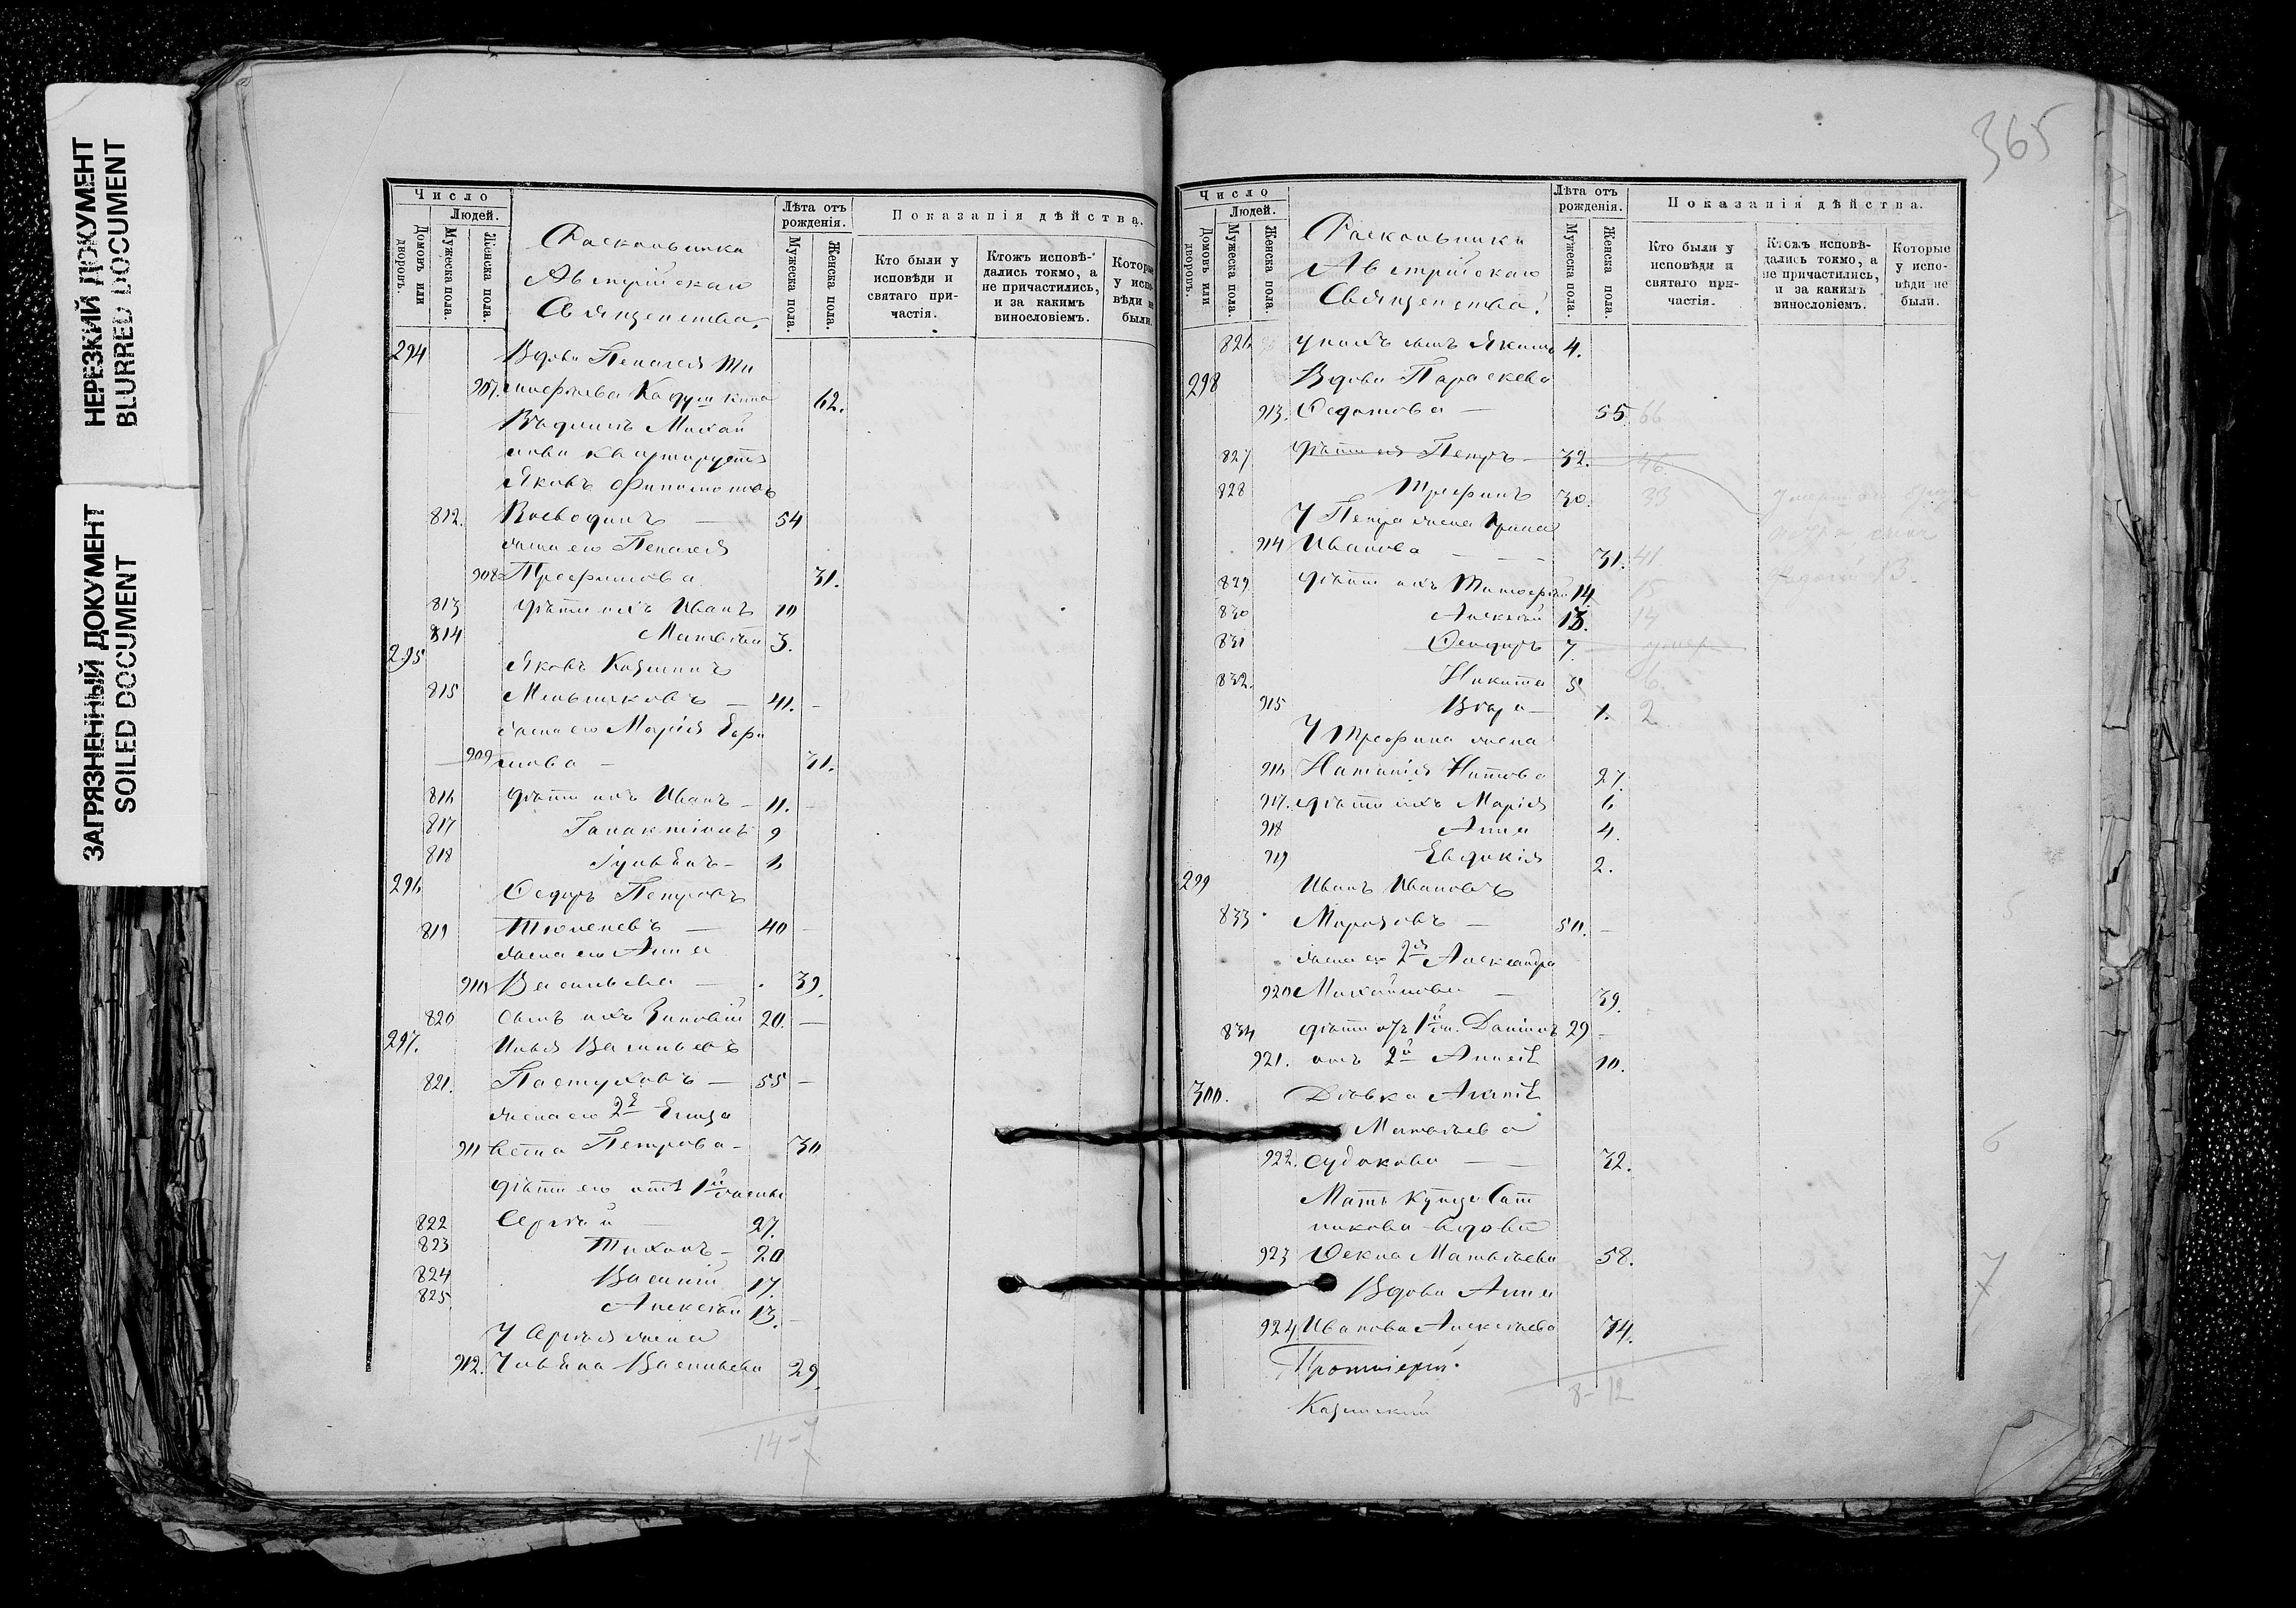 НЕРЕЗКИЙ ДОКУМЕНТ
BLURRED DOCUMENT
ЗАГРЯЗНЕННЫЙ ДОКУМЕНТ
SOILED DOCUMENT
Число
Людей.
Домовъ или дворовъ.
Мужеска пола.
Женска пола.
Раскольники
Австрійскаго
Священства.
Лѣта отъ рожденія.
Мужеска пола.
Женска пола.
Показанія дѣйства.
Кто были у исповѣди и святаго причастія.
Ктожъ исповѣдались токмо, а не причастились, и за какимъ винословіемъ.
Которые у исповѣди не были.
294 Вдова Пелагея Ти
907. моѳеева 62.
812. Воеводинъ — 54
жена его Пелагея
908 Трофимова 31.
813 дѣти ихъ Иванъ 10
814 Матвѣй 3.
295 Яковъ
815 Мельниковъ — 41.
жена его Марія
909 31.
816 дѣти ихъ Иванъ — 11.
817 Галактіонъ 9
818
296 Ѳедоръ Петровъ
819 Тюменевъ — 40
жена его Анна
910 Васильева — 39.
820 сынъ ихъ Зиновій 20.
297. Илья Васильевъ
821. Пастуховъ — 55
жена его 2я Елиза
911 вета Петрова — 30
дѣти его отъ 1й жены
822 Сергѣй — 27.
823 Тихонъ — 20
824 Василій 17.
825 Алексѣй 13.
У Сергѣя жена
912. Ульяна Васильева 29.
14-7
365
Число
Людей.
Домовъ или дворовъ.
Мужеска пола.
Женска пола.
Раскольники
Австрійскаго
Священства.
Лѣта отъ рожденія.
Мужеска пола.
Женска пола.
Показанія дѣйства.
Кто были у исповѣди и святаго причастія.
Ктожъ исповѣдались токмо, а не причастились, и за какимъ винословіемъ.
Которые у исповѣди не были.
826 у нихъ сынъ Якимъ 4.
298 Вдова Параскева
913. Ѳедотова — 55. 66
827 дѣти ея Петръ — 32. 46.
828 Трофимъ 30. 33
У Петра жена Ирина
914 Иванова — 31. 41
829 дѣти ихъ Тимоѳей 14 15
830 Алексѣй 13. 14
831 Ѳеодоръ 7. умер
832. Никита 5 6.
915 Вѣра — 1. 2
У Трофима жена
916 Наталія Титова 27.
917. дѣти ихъ Марія 6
918 Анна 4.
919 Евдокія 2.
299 Иванъ Ивановъ
833 Морозовъ — 50.
жена его 2я Александра
920 Михайлова — 39.
834 29
921. отъ 2й 10.
300. Дѣвка
Матвѣева
922. Судакова — 32.
Мать
вдова
923 Ѳекла Матвѣева 58.
Вдова Анна
924 Иванова Алексѣева 74.
Протоіерей
8-12
5
6
7